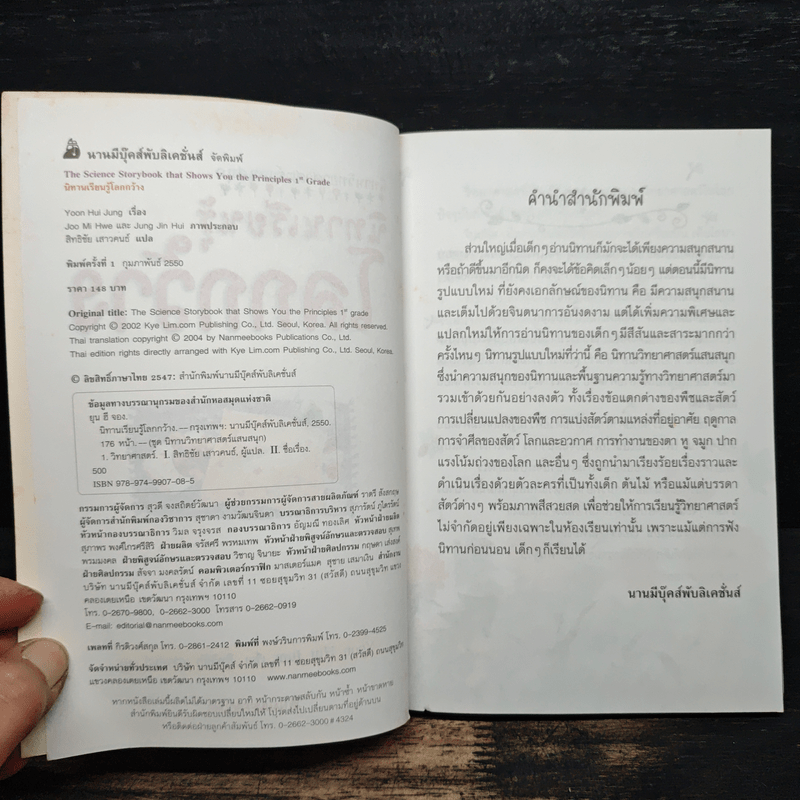 นานมีบุ๊คส์พับลิเคชั่นส์ จัดพิมพ์
The Science Storybook that Shows You the Principles 1st Grade
นิทานเรียนรู้โลกกว้าง
Yoon Hui Jung เรื่อง
Joo Mi Hwe และ Jung Jin Hui ภาพประกอบ
สิทธิชัย เสาวคนธ์ แปล
พิมพ์ครั้งที่ 1 กุมภาพันธ์ 2550
ราคา 148 บาท
Original title: The Science Storybook that Shows You the Principles 1st grade
Copyright © 2002 Kye Lim.com Publishing Co., Ltd. Seoul, Korea. All rights reserved.
Thai translation copyright © 2004 by Nanmeebooks Publications Co., Ltd.
Thai edition rights directly arranged with Kye Lim.com Publishing Co., Ltd. Seoul, Korea.
© ลิขสิทธิ์ภาษาไทย 2547: สำนักพิมพ์นานมีบุ๊คส์พับลิเคชั่นส์
ข้อมูลทางบรรณานุกรมของสำนักหอสมุดแห่งชาติ
ยุน ฮี จอง.
นิทานเรียนรู้โลกกว้าง.— กรุงเทพฯ: นานมีบุ๊คส์พับลิเคชั่นส์, 2550.
176 หน้า.—(ชุด นิทานวิทยาศาสตร์แสนสนุก)
1. วิทยาศาสตร์. I. สิทธิชัย เสาวคนธ์, ผู้แปล. II. ชื่อเรื่อง.
500
ISBN 978-974-9907-08-5
กรรมการผู้จัดการ สุวดี จงสถิตย์วัฒนา ผู้ช่วยกรรมการผู้จัดการสายผลิตภัณฑ์ ราตรี
ผู้จัดการสำนักพิมพ์กองวิชาการ สุชาดา งามวัฒนจินดา บรรณาธิการบริหาร สุภารัตน์
หัวหน้ากองบรรณาธิการ วิมล จรุงจรส กองบรรณาธิการ อัญมณี ทองเลิศ หัวหน้าฝ่ายผลิต
สุภาพร พงศ์ไกรศรีสิริ ฝ่ายผลิต จรัสศรี พรหมเทพ หัวหน้าฝ่ายพิสูจน์อักษรและตรวจสอบ
พรมมงคล ฝ่ายพิสูจน์อักษรและตรวจสอบ วิชาญ จินายะ หัวหน้าฝ่ายศิลปกรรม กฤษดา
ฝ่ายศิลปกรรม สัจจา มงคลรัตน์ คอมพิวเตอร์กราฟิก มาสเตอร์แมค สุชาย เสมาเงิน สำนักงาน
บริษัท นานมีบุ๊คส์ จำกัด เลขที่ 11 ซอยสุขุมวิท 31 (สวัสดี) ถนนสุขุมวิท แขวง
คลองเตยเหนือ เขตวัฒนา กรุงเทพฯ 10110
โทร. 0-2670-9800, 0-2662-3000 โทรสาร 0-2662-0919
E-mail: editorial@nanmeebooks.com
เพลทที่ กิรติวงศ์สกุล โทร. 0-2861-2412 พิมพ์ที่ พงษ์วรินการพิมพ์ โทร. 0-2399-4525
จัดจำหน่ายทั่วประเทศ บริษัท นานมีบุ๊คส์ จำกัด เลขที่ 11 ซอยสุขุมวิท 31 (สวัสดี) ถนนสุขุมวิท
แขวงคลองเตยเหนือ เขตวัฒนา กรุงเทพฯ 10110 www.nanmeebooks.com
หากหนังสือเล่มนี้ผลิตไม่ได้มาตรฐาน อาทิ หน้ากระดาษสลับกัน หน้าซ้ำ หน้าขาดหาย
สำนักพิมพ์ยินดีรับผิดชอบเปลี่ยนใหม่ให้ โปรดส่งไปเปลี่ยนตามที่อยู่ด้านบน
หรือติดต่อฝ่ายลูกค้าสัมพันธ์ โทร. 0-2662-3000 # 4324
คำนำสำนักพิมพ์
ส่วนใหญ่เมื่อเด็กๆ อ่านนิทานก็มักจะได้เพียงความสนุกสนาน
หรือถ้าดีขึ้นมาอีกนิด ก็คงจะได้ข้อคิดเล็กๆ น้อยๆ แต่ตอนนี้มีนิทาน
รูปแบบใหม่ ที่ยังคงเอกลักษณ์ของนิทาน คือ มีความสนุกสนาน
และเต็มไปด้วยจินตนาการอันงดงาม แต่ได้เพิ่มความพิเศษและ
แปลกใหม่ให้การอ่านนิทานของเด็กๆ มีสีสันและสาระมากกว่า
ครั้งไหนๆ นิทานรูปแบบใหม่ที่ว่านี้ คือ นิทานวิทยาศาสตร์แสนสนุก
ซึ่งนำความสนุกของนิทานและพื้นฐานความรู้ทางวิทยาศาสตร์มา
รวมเข้าด้วยกันอย่างลงตัว ทั้งเรื่องข้อแตกต่างของพืชและสัตว์
การเปลี่ยนแปลงของพืช การแบ่งสัตว์ตามแหล่งที่อยู่อาศัย ฤดูกาล
การจำศีลของสัตว์ โลกและอวกาศ การทำงานของตา หู จมูก ปาก
แรงโน้มถ่วงของโลก และอื่นๆ ซึ่งถูกนำมาเรียงร้อยเรื่องราวและ
ดำเนินเรื่องด้วยตัวละครที่เป็นทั้งเด็ก ต้นไม้ หรือแม้แต่บรรดา
สัตว์ต่างๆ พร้อมภาพสีสวยสด เพื่อช่วยให้การเรียนรู้วิทยาศาสตร์
ไม่จำกัดอยู่เพียงเฉพาะในห้องเรียนเท่านั้น เพราะแม้แต่การฟัง
นิทานก่อนนอน เด็กๆ ก็เรียนได้
นานมีบุ๊คส์พับลิเคชั่นส์